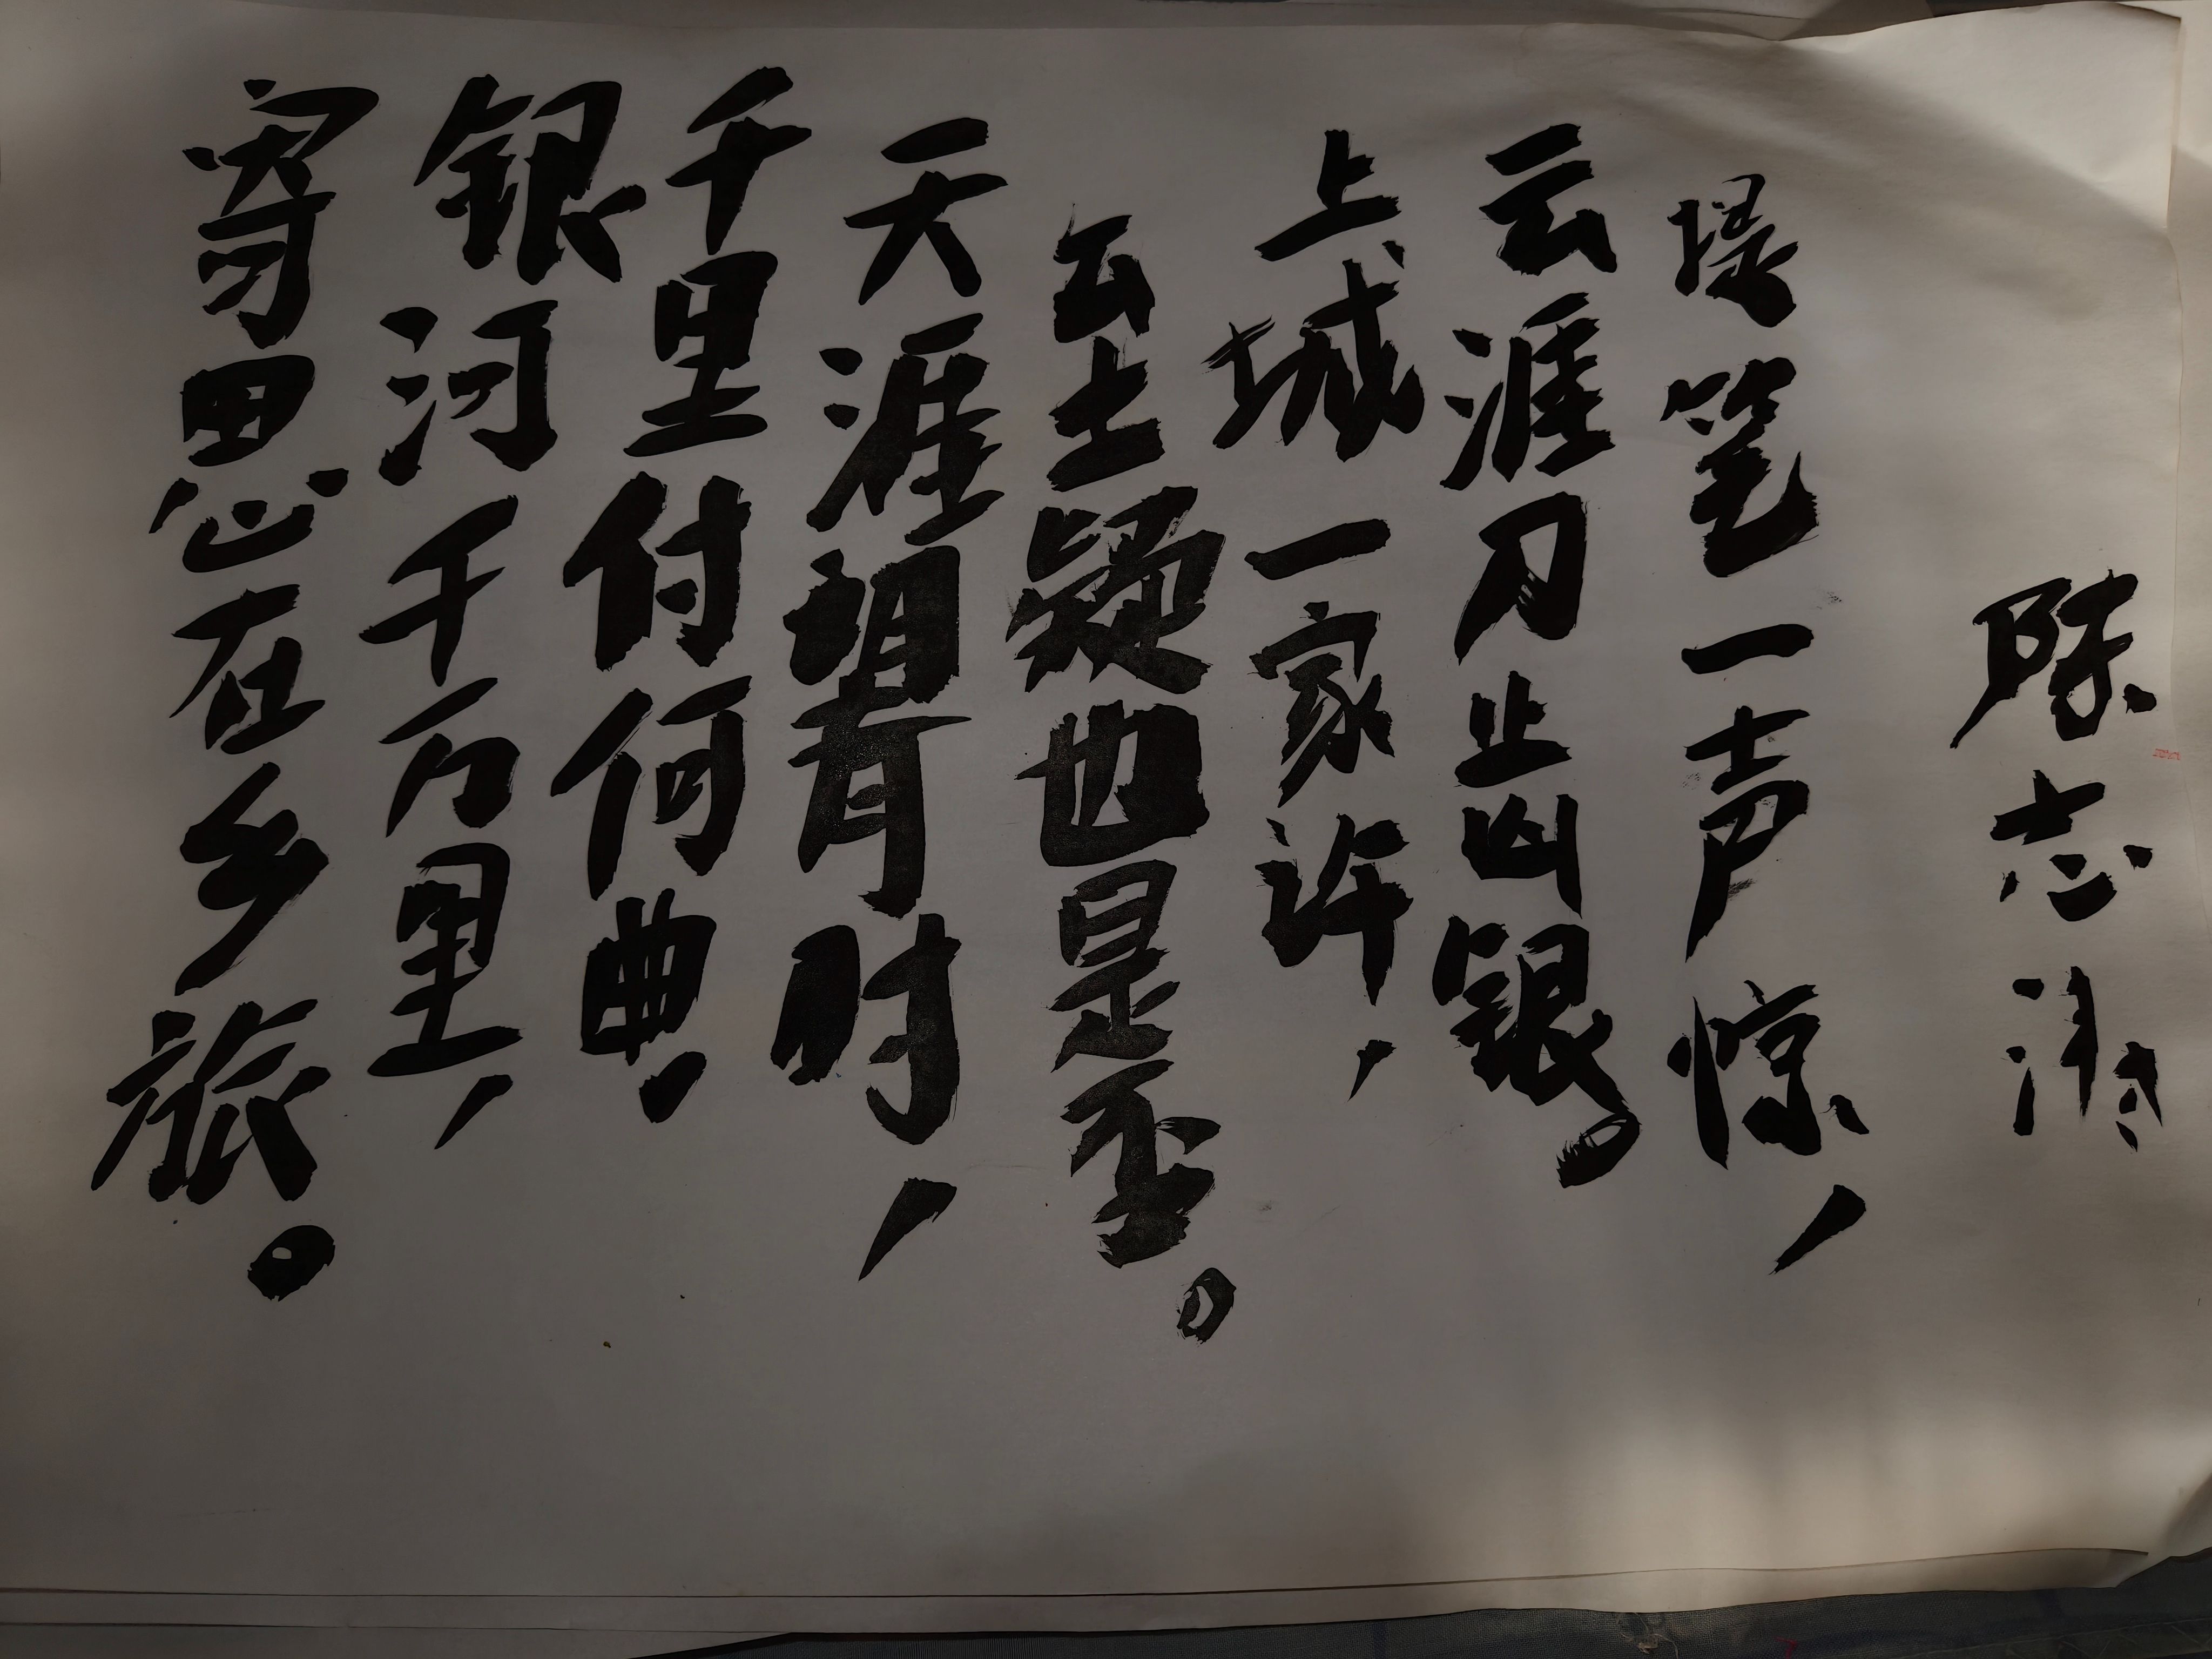 陈志清
提笔一声惊，
云涯刀止凶银。
上城一家许，
云土疑也是歪。
天涯望着时，
千里付何曲，
银河千万里，
寄思在乡旅。